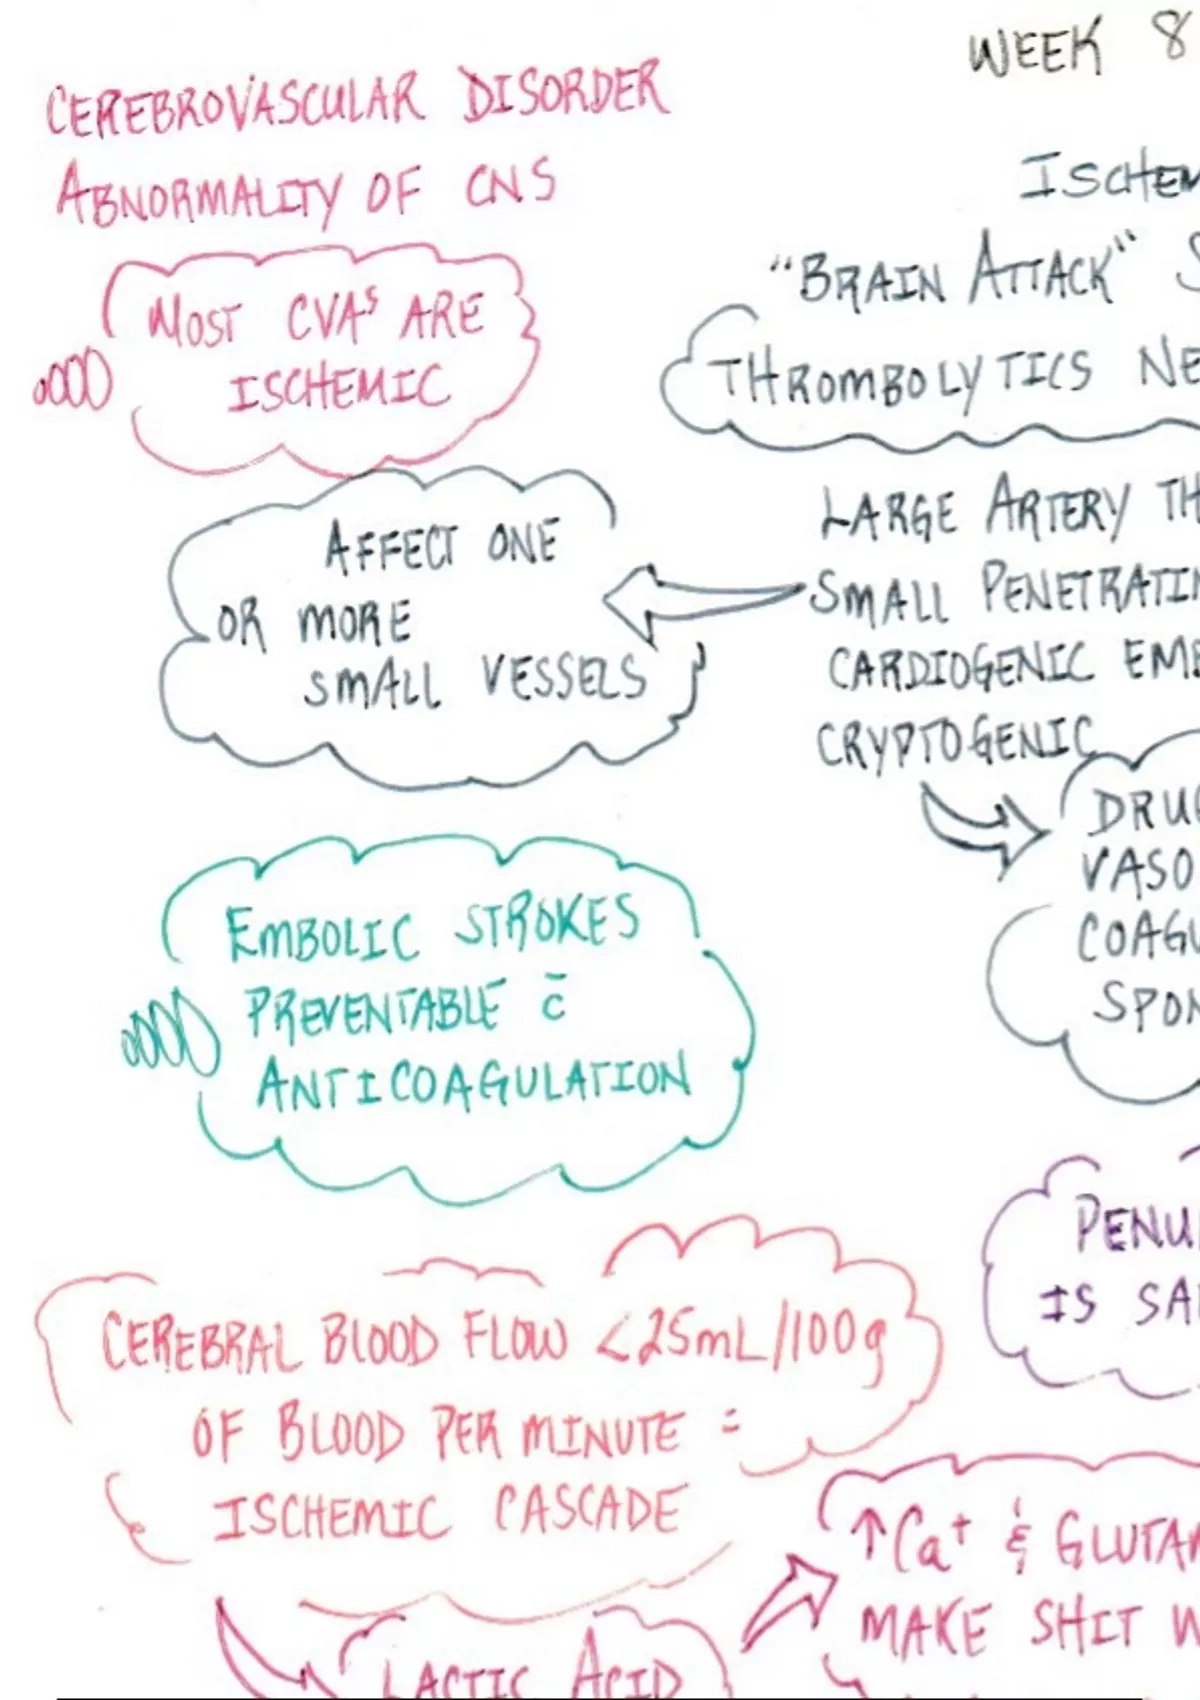 WEEK 8
CEREBROVASCULAR DISORDER
ABNORMALITY OF CNS
MOST CVAS ARE
ISCHEMIC
"BRAIN ATTACK"
THROMBOLYTICS
AFFECT ONE
OR MORE
SMALL VESSELS
LARGE ARTERY
SMALL
CARDIOGENIC
CRYPTOGENIC
EMBOLIC STROKES
PREVENTABLE c̄
ANTICOAGULATION
IS
CEREBRAL BLOOD FLOW <25mL/100g
OF BLOOD PER MINUTE =
ISCHEMIC CASCADE
↑Ca+ &
MAKE SHIT
LACTIC ACID